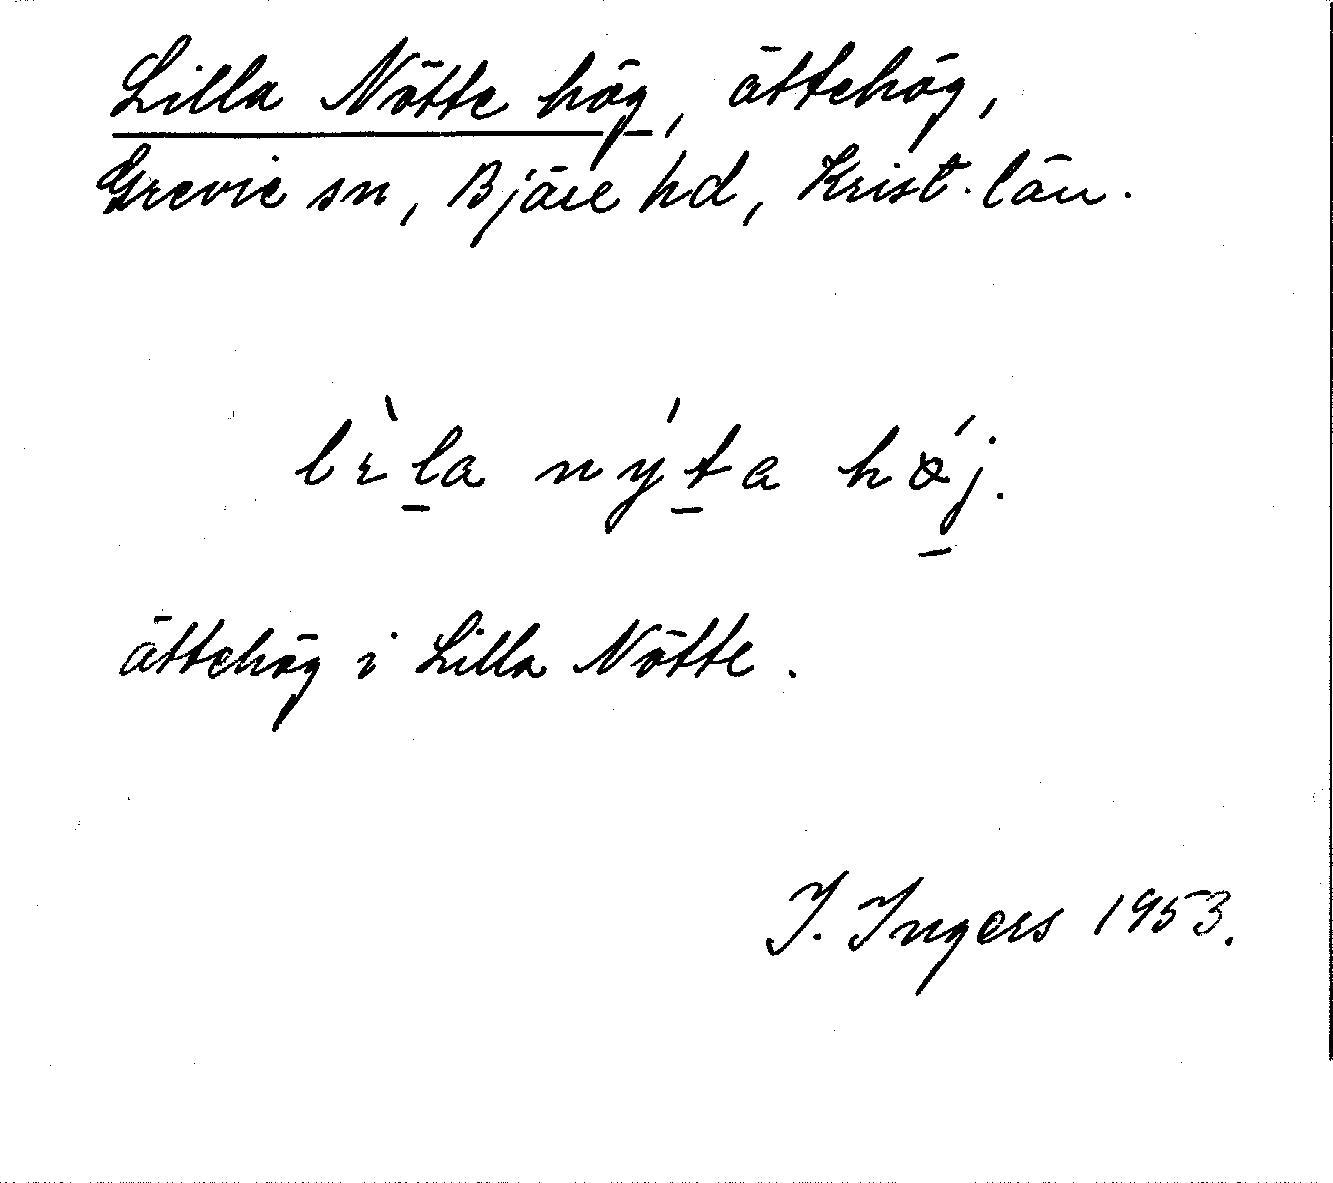 Lilla Nötte hög, ättehög,
Grevie sn, Bjäre hd, Krist. län.
lɛ̀l̲a nýt̲a hǿj̲.
ättehög i Lilla Nötte.
I. Ingers 1953.